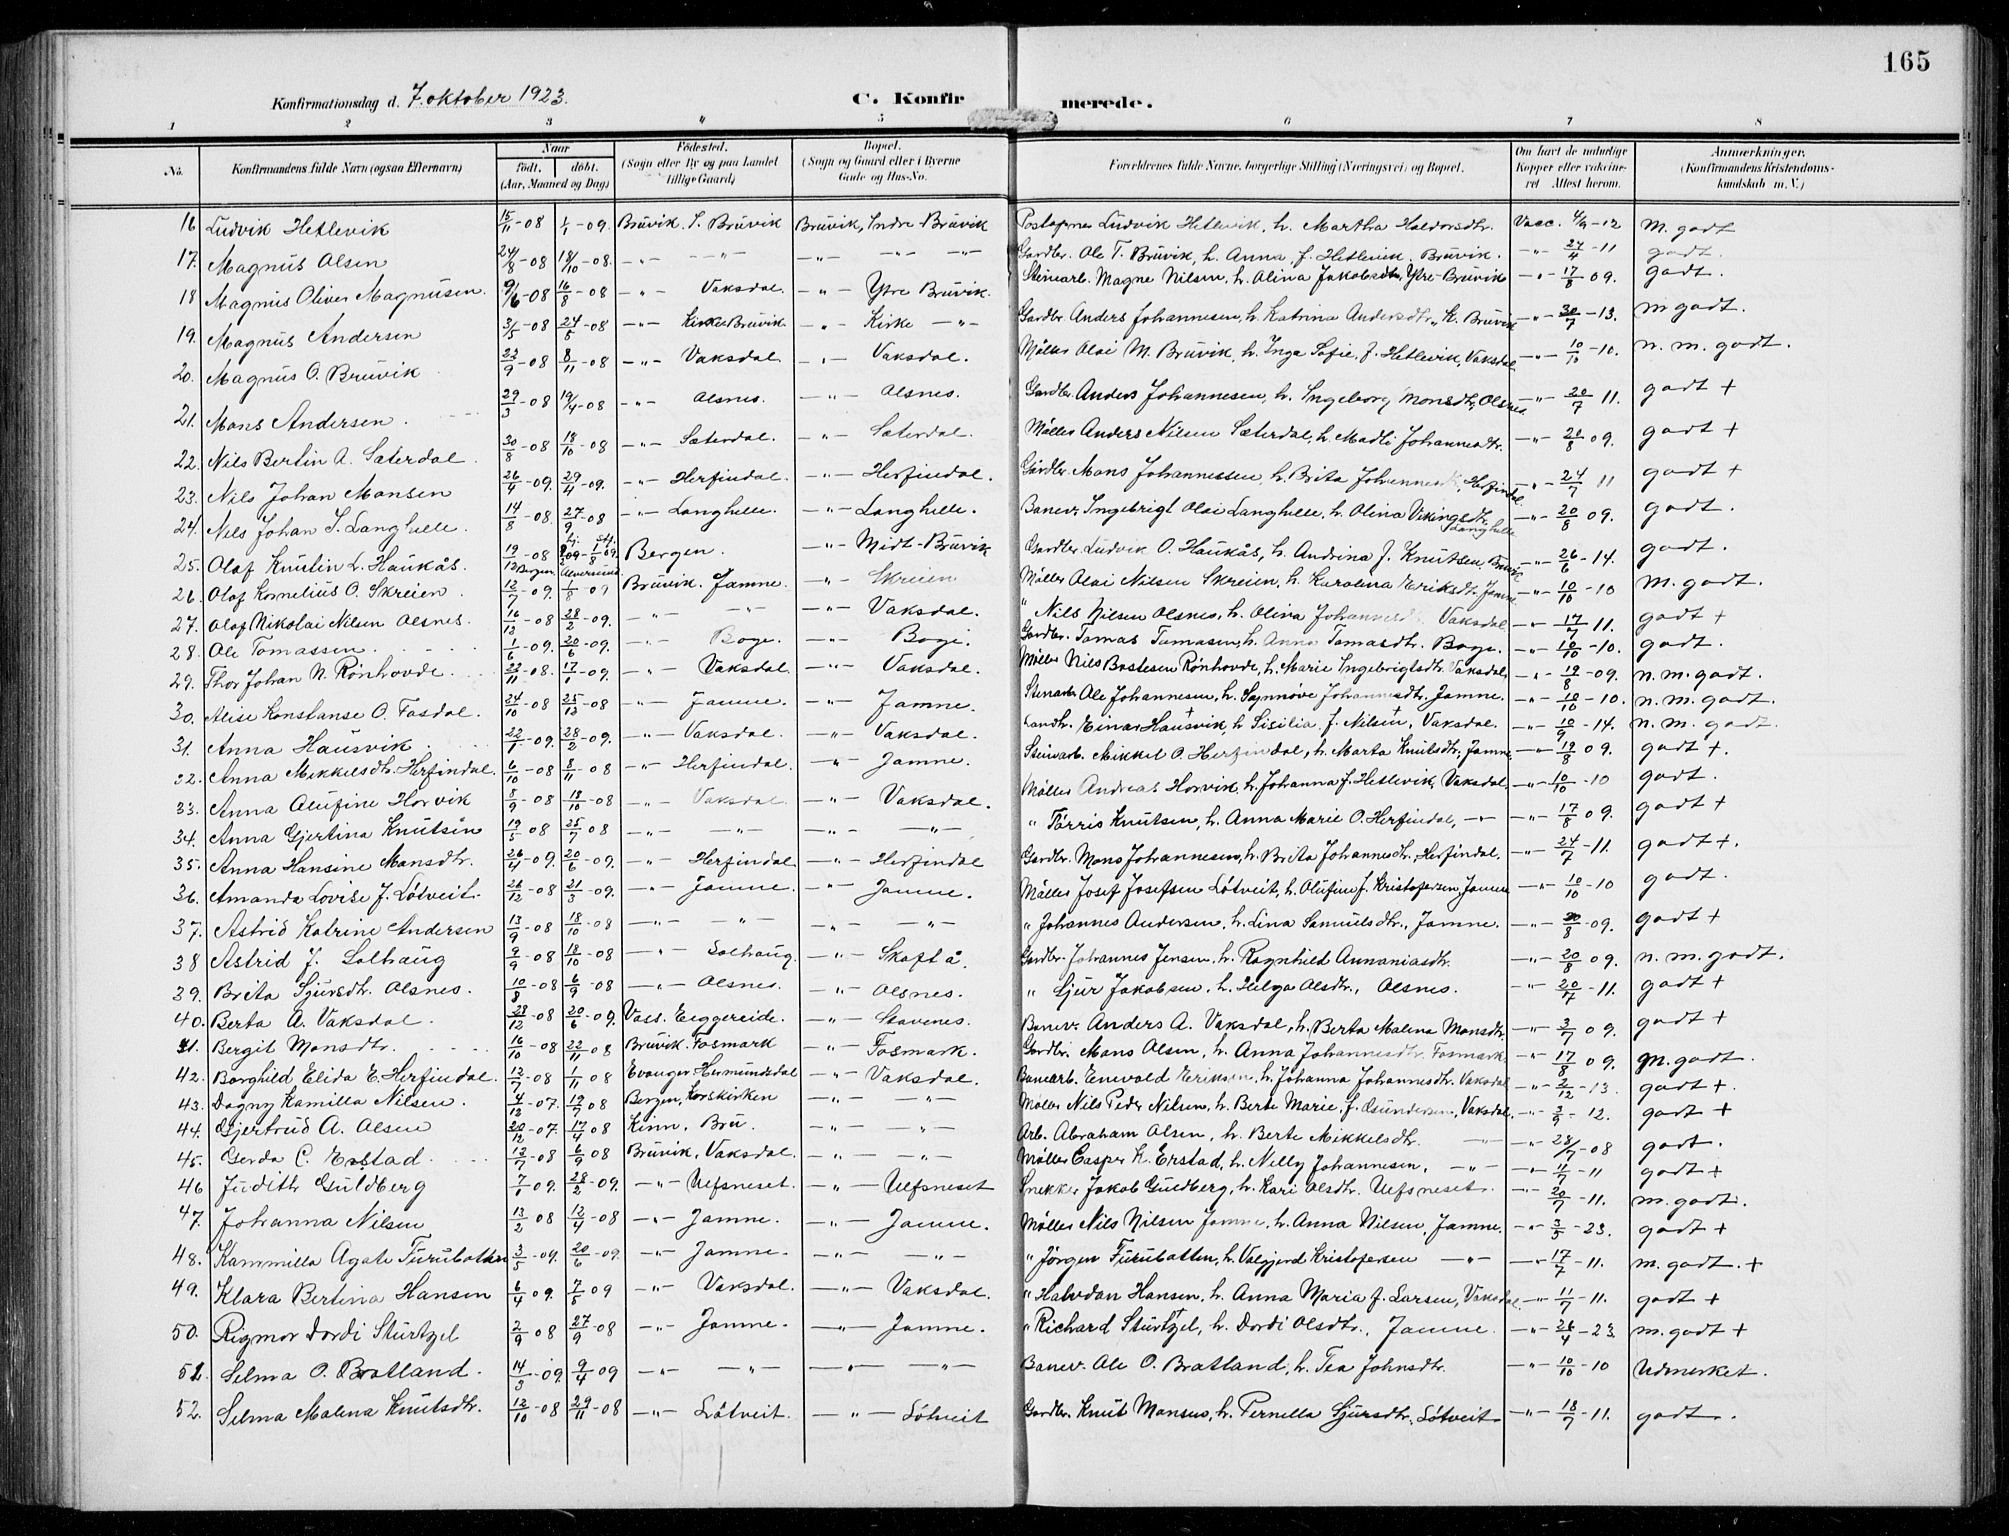 165
Konfirmationsdag d. 7. oktober 1923. C. Konfirmerede.
1 2 3 4 5 6 7 8
No. Konfirmandens fulde Navn (ogsaa Efternavn) Naar født. døbt. (Aar, Maaned og Dag) Fødested. (Sogn eller By og paa Landet tillige Gaard) Bopæl. (Sogn og Gaard eller i Byerne Gade og Hus-No. Forældrenes fulde Navne, borgerlige Stilling (Næringsvei) og Bopæl. Om havt de naturlige Kopper eller vakcineret. Attest herom. Anmærkninger. (Konfirmandens Kristendomskundskab m. V.)
16 Ludvik Hetlevik 15/11-08 1/1-09. Bruvik. I. Bruvik Bruvik, Indre-Bruvik Ludvik Hetlevik, h. Martha Haldorsdtr. Vacc. 4/9-12 m. godt
17. Magnus Olsen 24/8-08 18/10-08. -"- -"- -"- -"- -"- Gardbr. Ole T. Bruvik, h. Anna f. Hetlevik, Bruvik. -"- 24/4-11 godt.
18 Magnus Oliver Magnusen. 9/6-08 16/8-08 -"- Vaksdal. -"- Ytre Bruvik. Steinarb. Magne Nilsen, h. Alina Jakobsdtr, Ytre-Bruvik -"- 17/8 09. godt.
19. Magnus Andersen 3/5-08 24/5-08 -"- Kirke-Bruvik -"- Kirke -"- Gardbr. Anders Johannesen, h. Katrina Andersdtr., K. Bruvik -"- 30/7-13. m godt.
20. Magnus O. Bruvik 22/9-08 8/11-08 -"- Vaksdal -"- Vaksdal. Møller Olai M. Bruvik, h. Inga Sofie, f. Hetlevik, Vaksdal -"- 10/10-10. n. m. godt.
21. Mons Andersen. 29/3-08 19/4-08 -"- Olsnes. -"- Olsnes. Gardbr. Anders Johannesen, h. Ingeborg Monsdtr, Olsnes -"- 20/7 11. godt +
22. Nils Bertin A. Sæterdal 30/8-08 18/10-08 -"- Sæterdal. -"- Sæterdal. Møller Anders Nilsen Sæterdal, h. Madli Johannesdtr. -"- 20/8 09. godt +
23. Nils Johan Monsen 26/4-09. 29/4-09. -"- Herfindal. -"- Herfindal. Gardbr. Mons Johannessen, h. Brita Johannesdtr, Herfindal -"- 24/7 11 godt +
24. Nils Johan I. Langhelle. 14/8-08. 27/9-08 -"- Langhelle. -"- Langhelle. Banev. Ingebrigt Olai Langhelle, h. Olina Vikingsdtr. Langhelle -"- 20/8 09. godt.
25. Olaf Knutin L. Haukås. 19/12-08 Bergen. Alversund. Bergen. -"- Midt-Bruvik Gardbr. Ludvik O. Haukås, h. Andrina f. Knutsen, Bruvik -"- 26/6-14. godt.
26. Olaf Kornelius O. Skreien. 12/7-09. 1/8-09 Bruvik. Jamne. -"- Skreien Møller Olai Nilsen Skreien, h. Karolina Eriksdtr. Jamne -"- 10/10-10 M. godt.
27. Olaf Nikolai Nilsen Olsnes. 16/12-08 28/2-09. -"- -"- -"- Vaksdal. " Nils Nilsen Olsnes, h. Olina Johannesdtr. Vaksdal -"- 17/7 11. godt +
28. Ole Tomassen. 1/6-09. 20/6-09. -"- Boge. -"- Boge. Gardbr. Tomas Tomasen, h. Anna Tomasdtr. Boge. -"- 10/10-10. godt.
29. Thor Johan N. Rønhovde. 22/11-08. 17/1-09. -"- Vaksdal -"- Vaksdal. Møller Nils Bostesen Rønhovde, h. Marie Ingebrigtsdtr. Vaksdal, -"- 19/8-09. n. m. godt.
30. Alise Konstanse O. Fosdal. 24/10-08 25/12-08 -"- Jamne. -"- Jamne. Steinarb. Ole Johannesen, h. Synnøve Johannesdtr. Jamne. -"- 10/10-10. n. m. godt.
31. Anna Hausvik 22/1-09. 28/2-09. -"- Vaksdal. -"- Vaksdal. Landh. Einar Hausvik, h. Sisilia f. Nilsen, Vaksdal. -"- 10/9-14. n. m. godt
32. Anna Mikkelsdtr. Herfindal. 6/10-08 8/11-08 -"- Herfindal. -"- Jamne. Steinarb. Mikkel O. Herfindal, h. Marta Knutsdtr, Jamne -"- 19/8 09. godt +.
33. Anna Olufine Horvik 8/9-08 18/10-08 -"- Vaksdal -"- Vaksdal. Møller Andreas Horvik, h. Johanna f. Hetlevik, Vaksdal -"- 10/10-10 godt.
34. Anna Gjertina Knutsen 19/5-08 25/7 08 -"- -"- -"- -"- " Tørris Knutsen, h. Anna Marie O. Herfindal, -"- -"- 17/8 09. godt +
35. Anna Hansine Monsdtr. 26/4-09. 20/6-09. -"- Herfindal -"- Herfindal Gardbr. Mons Johannesen, h. Brita Johannesdtr., Herfindal. -"- 24/7-11. godt +.
36. Amanda Lovise J. Løtveit. 26/12-08 21/3-09. -"- Jamne. -"- Jamne. Møller Josef Josefsen Løtveit, h. Olufine f. Kristofersen, Jamne -"- 10/10-10 godt.
37. Astrid Katrine Andersen 13/9-08 18/10-08 -"- -"- -"- -"- " Johannes Andersen, h. Lina Samuelsdtr., Jamne. -"- 20/8-09. godt +
38 Astrid J. Solhaug 9/9-08 18/10-08 -"- Solhaug. -"- Skoftå. Gardbr. Johannes Jensen, h. Ragnhild Annaniasdtr. -"- 20/8 09. n. m. godt.
39. Brita Sjursdtr. Olsnes. 10/8-08 6/9-08 -"- Olsnes. -"- Olsnes. " Sjur Jakobsen, h. Helga Olsdtr., Olsnes. -"- 20/7-11. godt +
40. Berta A. Vaksdal. 28/12-08 20/6-09. Voss. -"- Stavenes. Banev. Anders A. Vaksdal, h. Berta Malena Monsdtr. -"- 3/7 09. godt +
41. Bergit Monsdtr. 16/10-08 22/11 08 Bruvik. Fosmark -"- Fosmark. Gardbr. Mons Olsen, h. Anna Johannesdtr. Fosmark -"- 17/8 09. m. godt.
42. Borghild Elida E. Herfindal. 12/7-08 1/11 08 Evanger Hermundsdal -"- Vaksdal. Banearb. Enevald Eriksen, h. Johanna Johannesdtr. Vaksdal -"- 2/12-13. godt +.
43. Dagny Kamilla Nilsen. 4/12-07. 12/7 08 Bergen, Korskirken -"- -"- Møller Nils Peder Nilsen, h. Berte Marie f. Osundersen, Vaksdal, -"- 3/9-12. godt +
44. Gjertrud A. Olsen 20/12-07. 17/4 08 Kinn, Bru. -"- -"- Arb. Abraham Olsen, h. Berte Mikkelsdtr. -"- -"- 28/7-08 godt.
45. Gerda C. Erstad. 12/7-08 6/9 08 Bruvik, Vaksdal. -"- -"- Møller Casper K. Erstad, h. Nelly Johannesen, -"- -"- 11/7-11 godt +
46 Judith Guldberg 7/1 09. 28/2-09. -"- Uefsneset. -"- Uefsneset Snekker Jakob Guldberg, h. Kari Olsdtr. Uefsneset. -"- 20/7-11. m. godt.
47. Johanna Nilsen 13/2 08 12/4-08 -"- Jamne. -"- Jamne. Møller Nils Nilsen Jamne, h. Anna Nilsen, Jamne. -"- 3/5-23. godt +
48. Kammilla Agate Furubotten 3/5-09. 20/6-09. -"- Jamne. -"- -"- " Jørgen Furubotten, h. Valgjerd Kristofersen -"- -"- 17/7-11. m. godt. +
49. Klara Bertina Hansen 6/4 09. 7/5 09 -"- Vaksdal. -"- Vaksdal. " Halvdan Hansen, h. Anna Maria f. Larsen, Vaksdal -"- 11/7-11. godt +
50. Rigmor Dordi Sturtzel 2/9 08 27/9-08 -"- Jamne. -"- Jamne. " Richard Sturtzel, h. Dordi Olsdtr., Jamne. -"- 26/4-23 m. godt +
51. Selma O. Bratland. 14/3-09. 9/4 09 -"- -"- -"- -"- Banev. Ole O. Bratland, h. Tea Johnsdtr. -"- 10/10-10 Udmerket.
52. Selma Malena Knutsdtr. 12/10-08 29/11-08 -"- Løtveit. -"- Løtveit Gardbr. Knut Monsen, h. Pernella Sjursdtr., Løtveit -"- 18/7-11. godt.